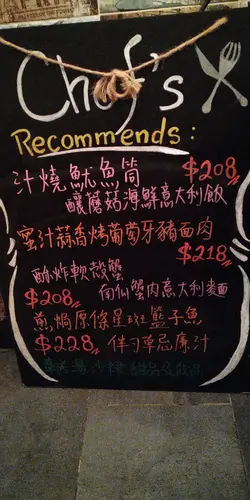 Chef's
Recommends:
汁燒魷魚筒 $208
釀蘑菇海鮮意大利飯
蜜汁蒜香烤葡萄牙豬面肉
$218
酥炸軟殼蟹
$208 肉蟹肉意大利麵
煎焗原條星斑藍子魚
$228 伴刁草忌廉汁